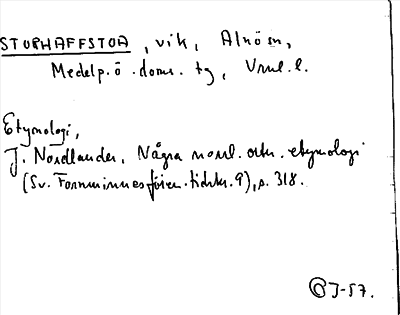 STORHAFFSTOA, vik, Alnö sn,
Medelp. ö. doms. tg, Vnul. l.
Etymologi,
J. Nordlander, Några norrl. ortn. etymologi
(Sv. Fornminnesfören. tidskr. 9), s. 318.
J-57.